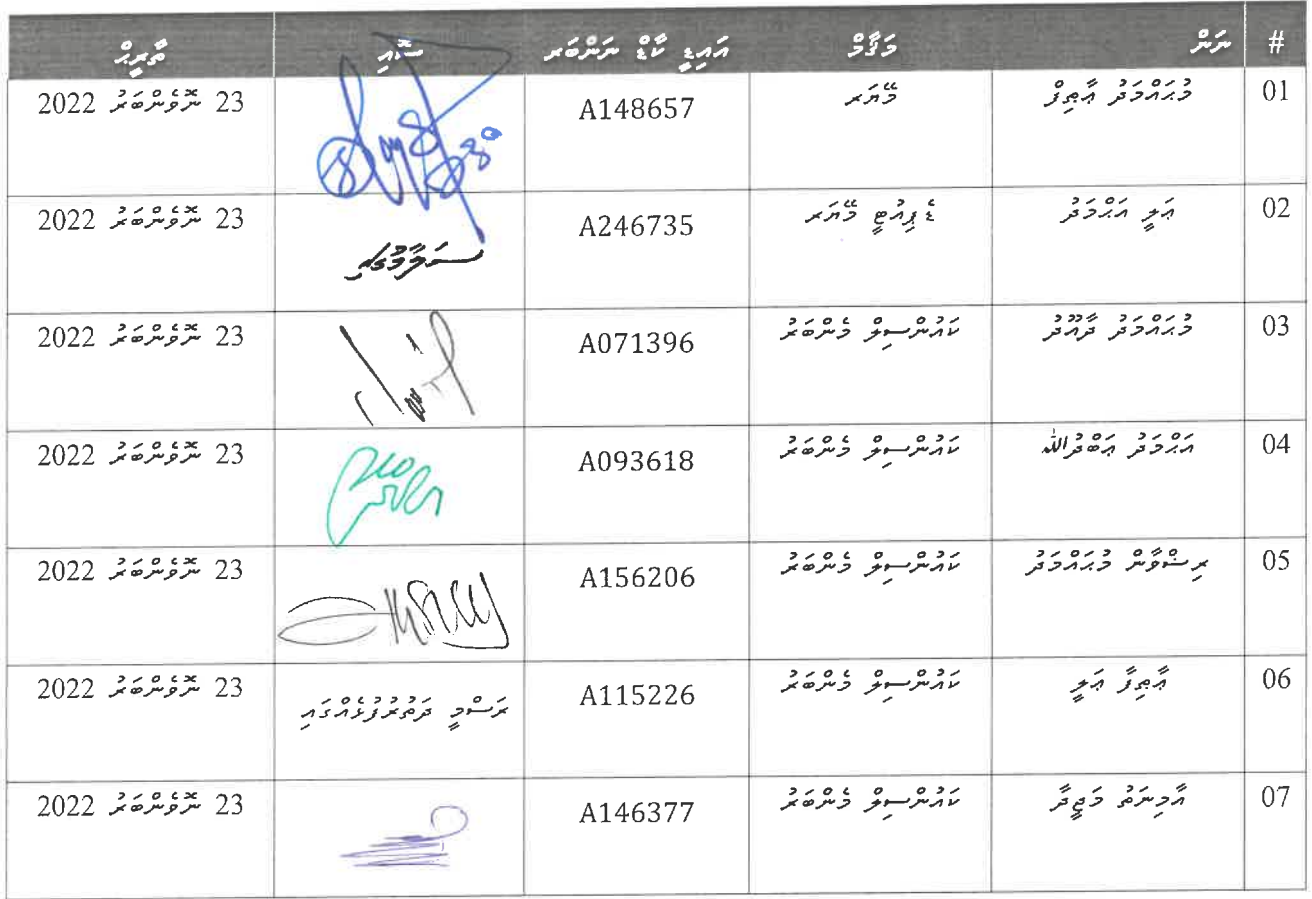 # ނަން މަޤާމް އައިޑީ ކާޑް ނަންބަރ ސޮއި ތާރީޚް
01 މުޙައްމަދު ޢާޠިފް މޭޔަރ A148657 23 ނޮވެންބަރު 2022
02 ޢަލީ އަޙްމަދު ޑެޕިއުޓީ މޭޔަރ A246735 23 ނޮވެންބަރު 2022
03 މުޙައްމަދު ދާއޫދު ކައުންސިލް މެންބަރު A071396 23 ނޮވެންބަރު 2022
04 އަޙްމަދު ޢަބްދުﷲ ކައުންސިލް މެންބަރު A093618 23 ނޮވެންބަރު 2022
05 ރިޟްވާން މުޙައްމަދު ކައުންސިލް މެންބަރު A156206 23 ނޮވެންބަރު 2022
06 ޢާޠިފާ ޢަލީ ކައުންސިލް މެންބަރު A115226 ރަސްމީ ދަތުރުފުޅެއްގައި 23 ނޮވެންބަރު 2022
07 އާމިނަތު މަޖީދާ ކައުންސިލް މެންބަރު A146377 23 ނޮވެންބަރު 2022